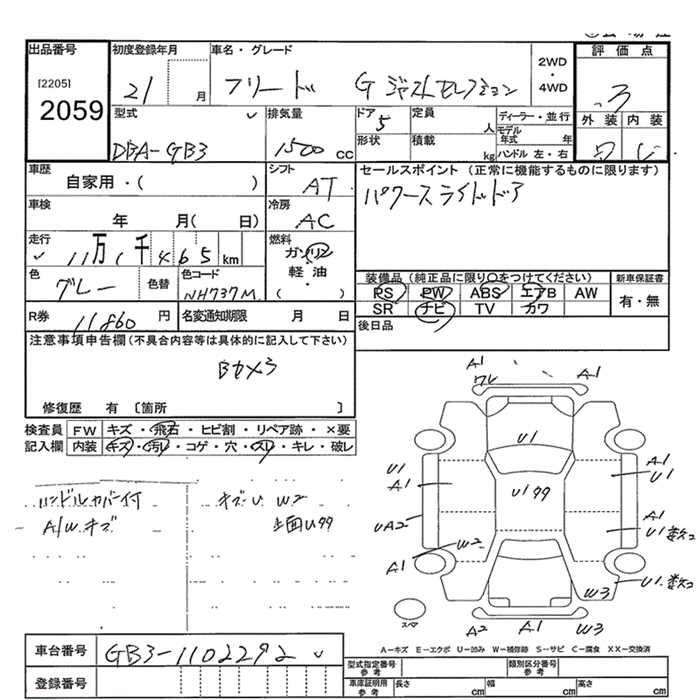 出品番号 初度登録年月 車名・グレード 2WD・4WD 評価点
[2205]
2059
21 月 フリード G ジャストセレクション 3
型式 排気量 ドア 定員 ディーラー・並行 外装 内装
DBA-GB3 1500 cc 5 人 モデル年式 年
形状 積載 kg ハンドル 左・右
車歴 シフト セールスポイント(正常に機能するものに限ります)
自家用・( ) AT パワースライドドア
車検 冷房
年 月( 日) AC
走行 燃料
11万1千465km ガソリン
軽・油
( )
色 色替 色コード 装備品(純正品に限り○をつけてください) 新車保証書
グレー NH737M PS PW ABS エアB AW 有・無
SR ナビ TV カワ
R券 11860円 名変通知期限 月 日 後日品
注意事項申告欄(不具合内容等は具体的に記入して下さい)
Bカメラ
修復歴 有〔箇所 〕
検査員 FW キズ・飛石・ヒビ割・リペア跡・×要
記入欄 内装 キズ・汚レ・コゲ・穴・スレ・キレ・破レ
ハンドルカバー付 キズ・U W2
A/W キズ 上面U99
A1
ワレ
A1
U1
U1
A1
A1
U1
U199
UA2
A1
U1
W2
A1
U1
W3
スペア
A2 A1 W3
A-キズ E-エクボ U-凹み W-補修跡 S-サビ C-腐食 XX-交換済
車台番号 GB3-1102292
登録番号
型式指定番号 参考 類別区分番号 参考
車庫証明用 参考 長さ cm 幅 cm 高さ cm